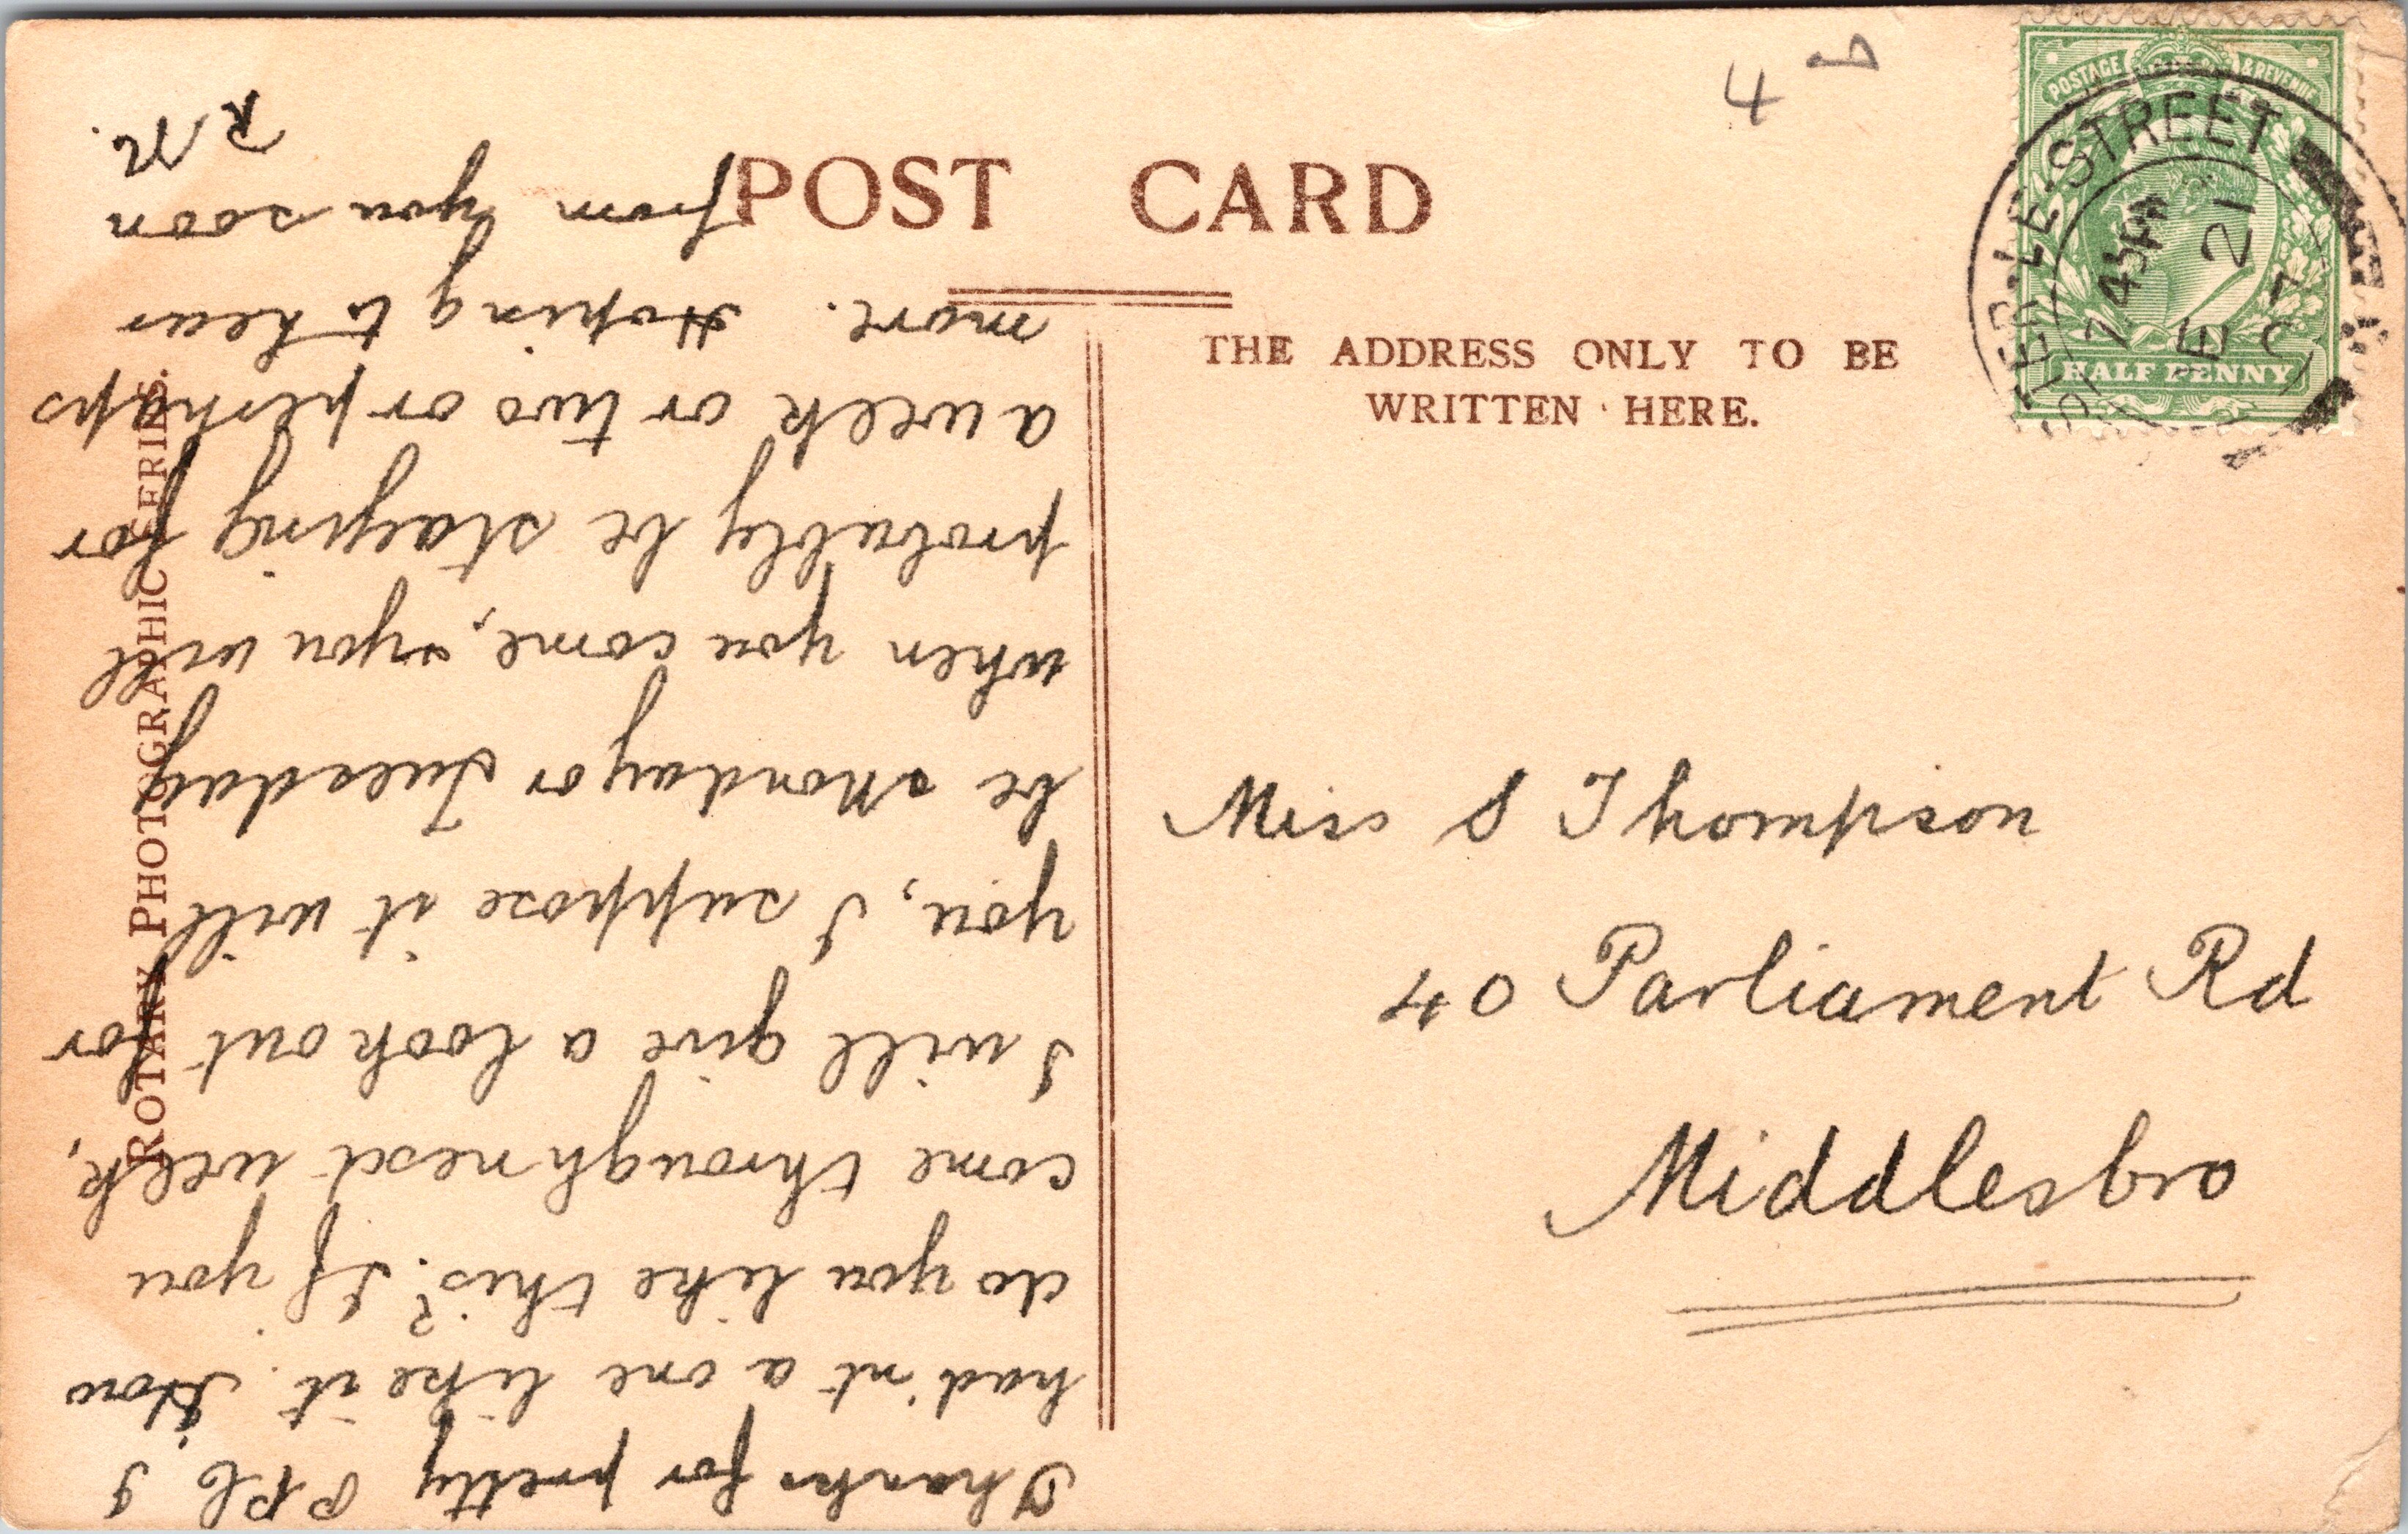 POST CARD
THE ADDRESS ONLY TO BE
WRITTEN HERE.
ROTARY PHOTOGRAPHIC SERIES.
POSTAGE & REVENUE
HALF PENNY
STREET
7 45PM
SE 21
07
4 D
Thanks for pretty P.P.C. I
had'nt a one like it. How
do you like this? If you
come through next week,
I will give a look out for
you, I suppose it will
be Monday or Tuesday
when you come, & you will
probably be staying for
a week or two or perhaps
more. Hoping to hear
from you soon
R M.
Miss S Thompson
40 Parliament Rd
Middlesbro